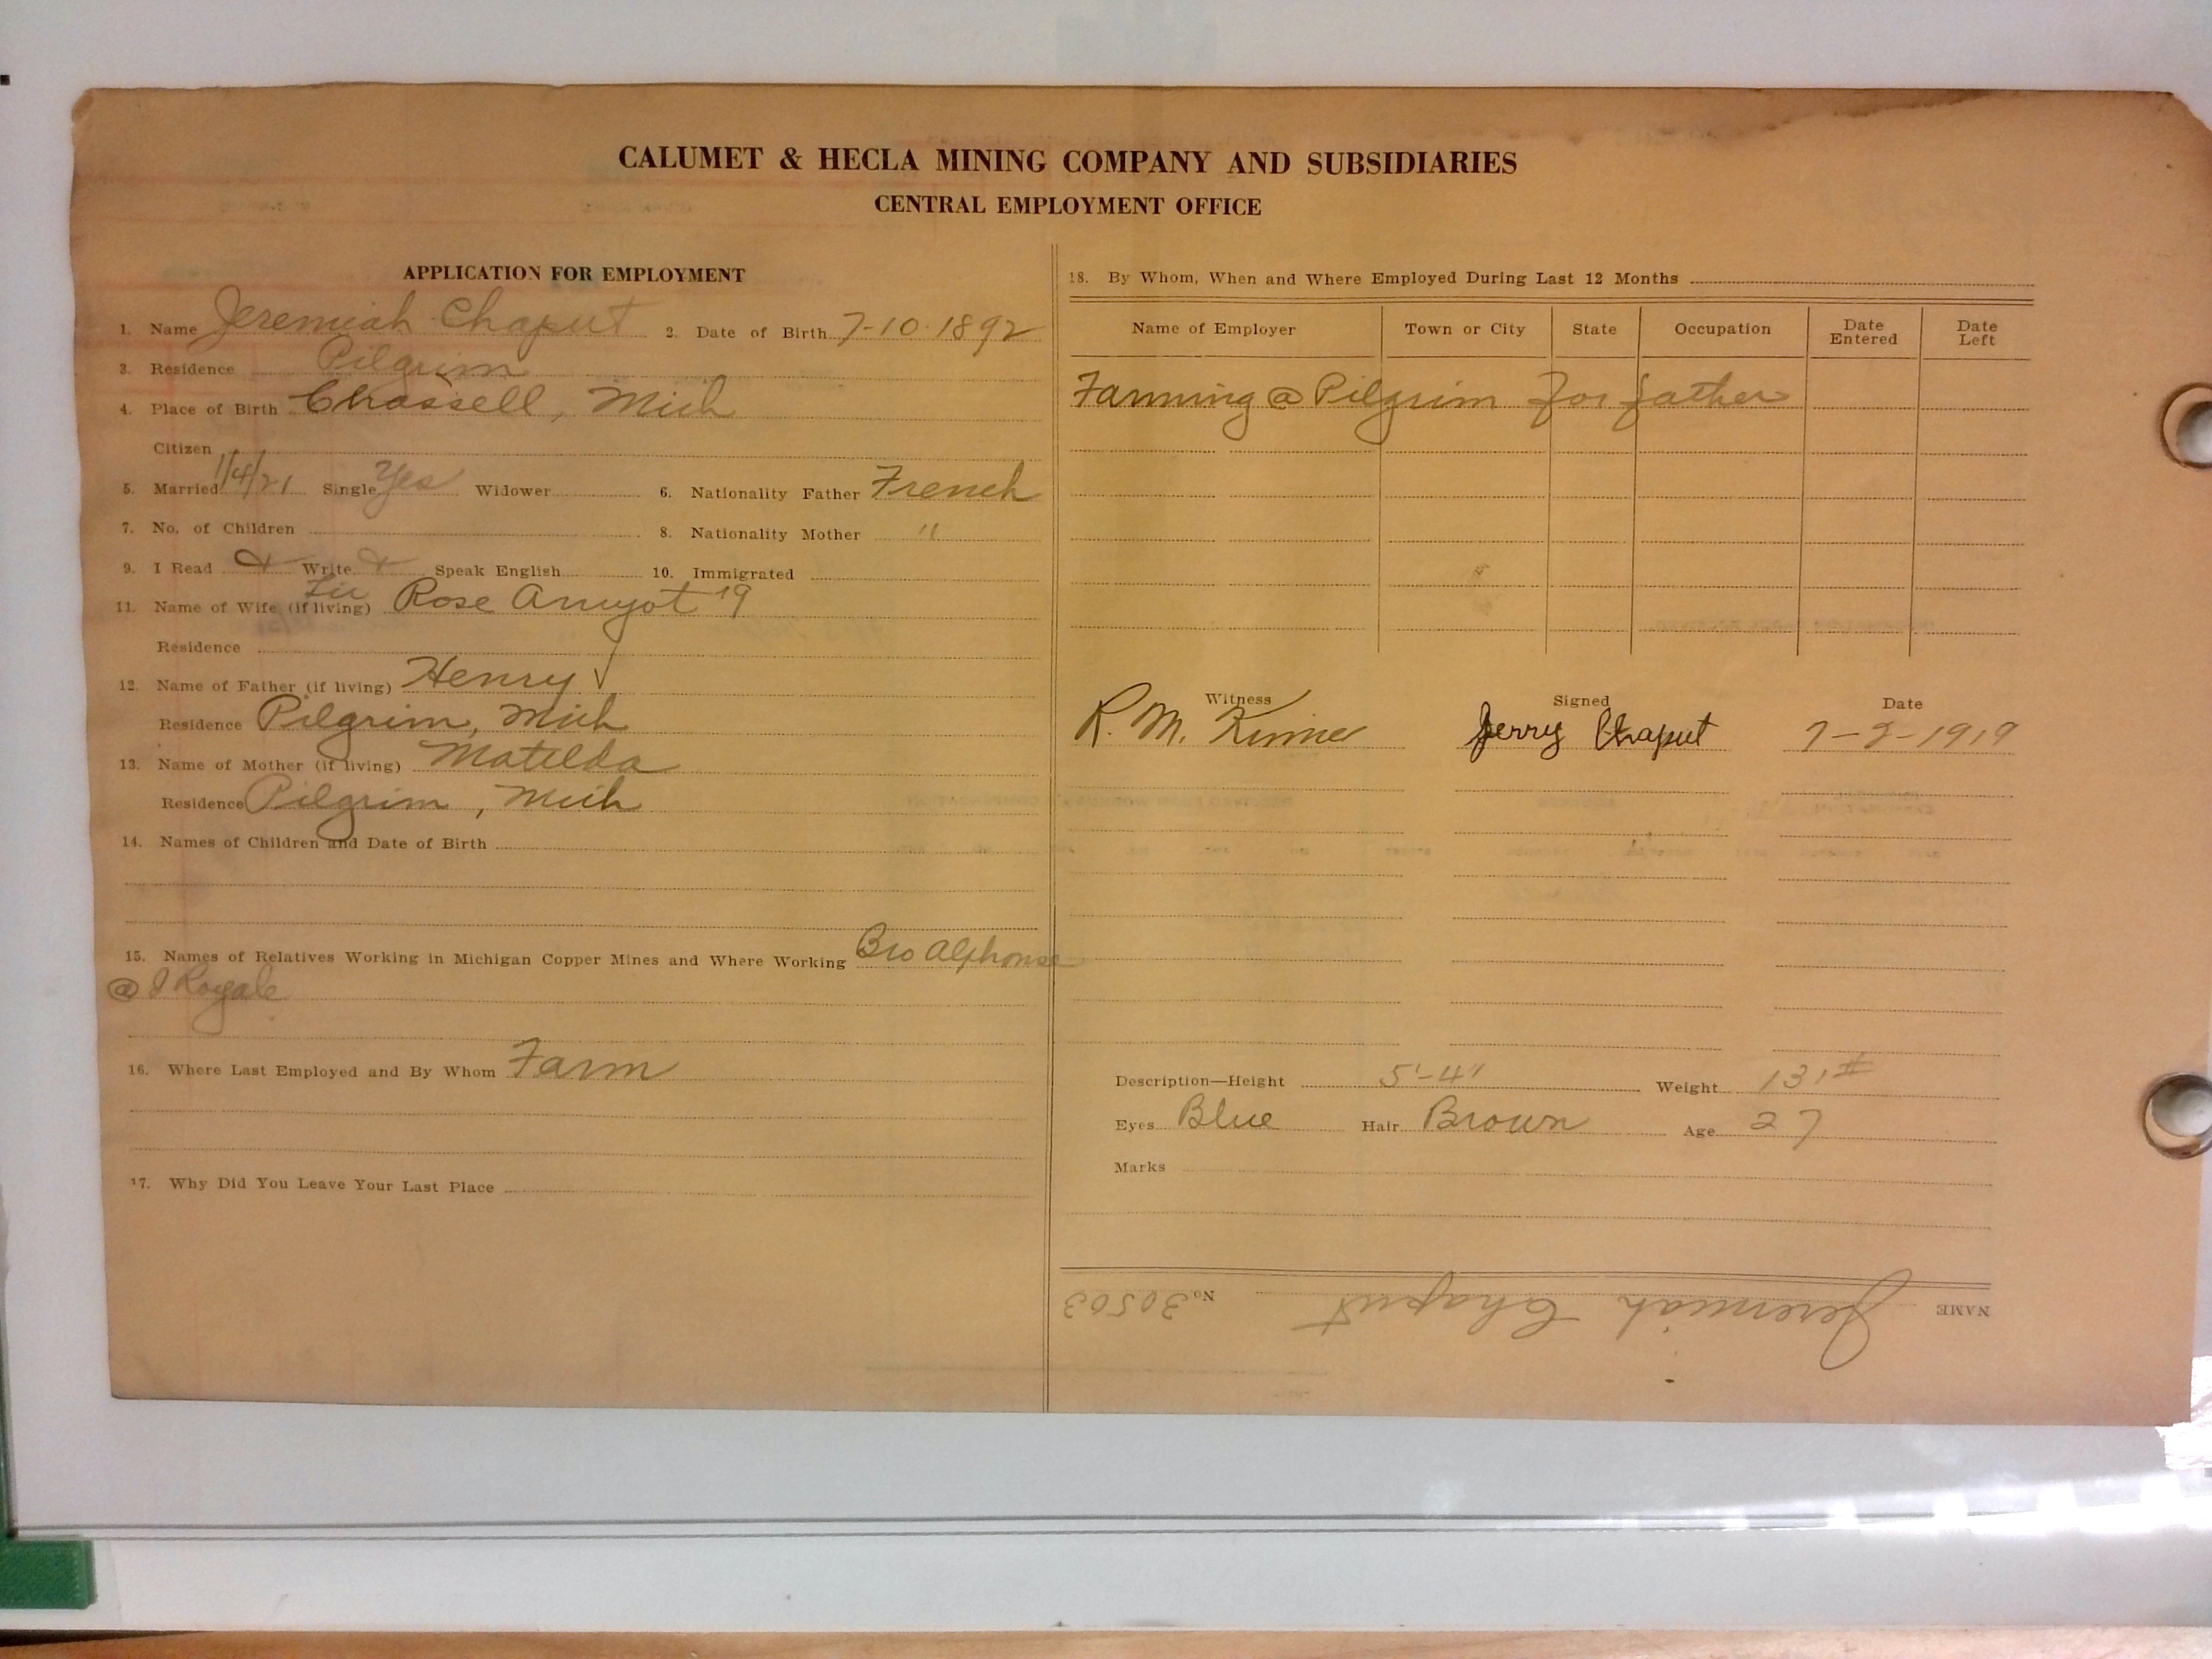 CALUMET & HECLA MINING COMPANY AND SUBSIDIARIES
CENTRAL EMPLOYMENT OFFICE
APPLICATION FOR EMPLOYMENT
1. Name Jeremiah Chaput 2. Date of Birth 7-10-1892
3. Residence Pilgrim
4. Place of Birth Chassell, Mich
Citizen
5. Married 1/4/21 Single Yes Widower 6. Nationality Father French
7. No. of Children 8. Nationality Mother "
9. I Read Write Speak English 10. Immigrated
11. Name of Wife (if living) Rose Amyot 19
Residence
12. Name of Father (if living) Henry √
Residence Pilgrim, Mich
13. Name of Mother (if living) Matilda
Residence Pilgrim, Mich
14. Names of Children and Date of Birth
15. Names of Relatives Working in Michigan Copper Mines and Where Working Bro Alphonse
@ I Royale
16. Where Last Employed and By Whom Farm
17. Why Did You Leave Your Last Place
18. By Whom, When and Where Employed During Last 12 Months
Name of Employer Town or City State Occupation Date Entered Date Left
Farming @ Pilgrim for father
Witness Signed Date
R. M. Jerry Chaput 7-2-1919
Description—Height 5'-4" Weight 131#
Eyes Blue Hair Brown Age 27
Marks
NAME Jeremiah Chaput No. 30503